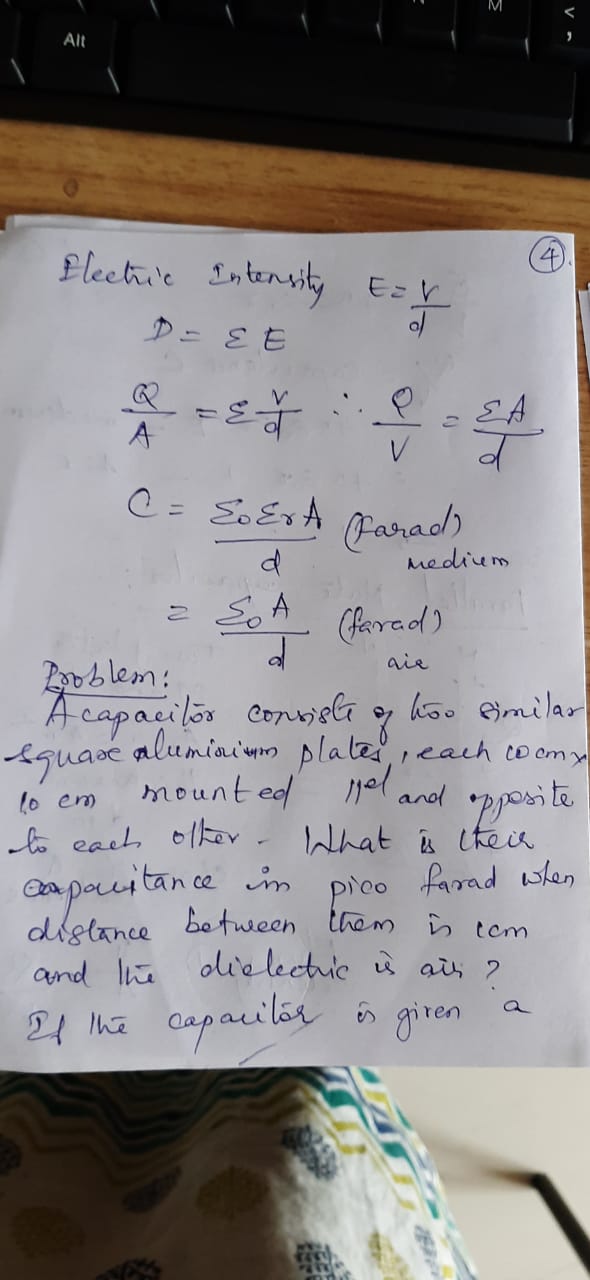 Alt
N
M
<
,
④.
Electric Intensity E = V/d
D = ε E
Q/A = ε V/d ∴ Q/V = εA/d
C = ε₀ εr A/d (Farad) medium
= ε₀ A/d (farad) air
Problem:
A capacitor consists of two similar
square aluminium plates, each 10 cm x
10 cm mounted llel and opposite
to each other. What is their
capacitance in pico farad when
distance between them is 1cm
and the dielectric is air?
If the capacitor is given a